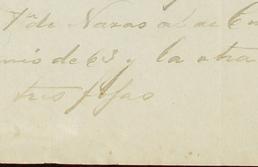 7ª de Navas al de En
nio de 63 y la otra
tres fojas